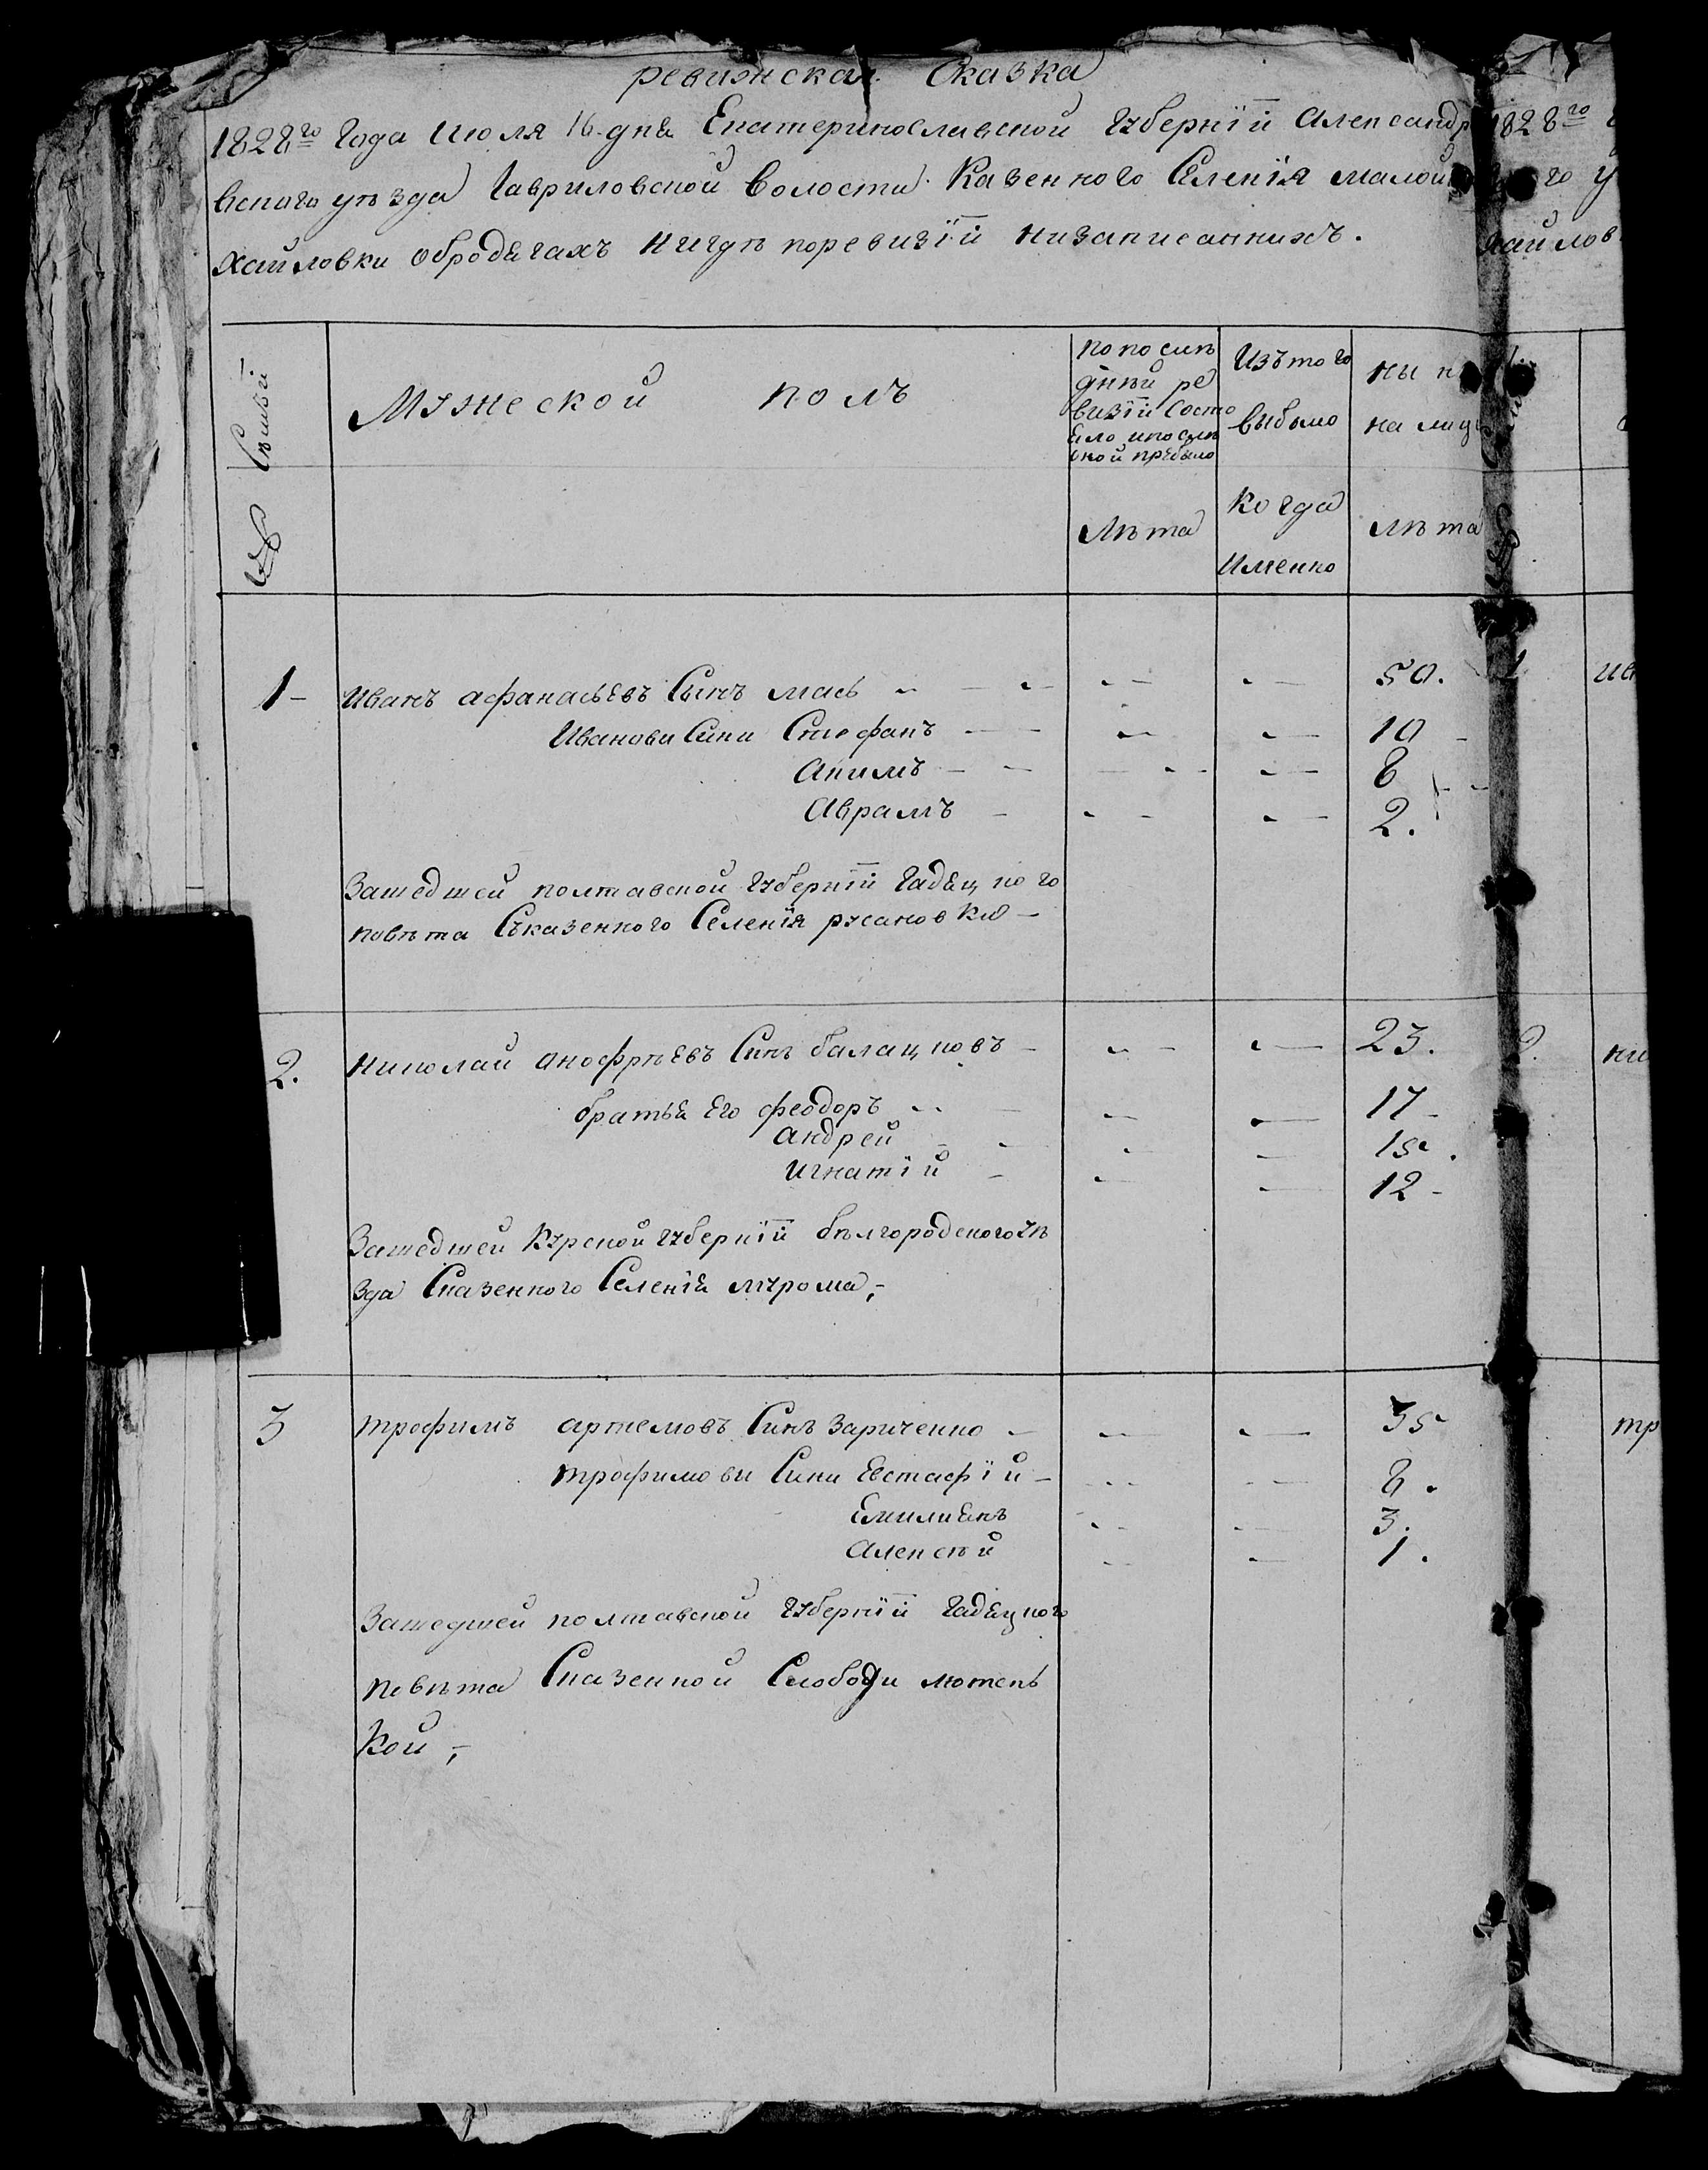 ревижская Сказка
1828го Года Июля 16 дня Екатеринославской Губернїй Александр
вского уѣзда Гавриловской волости Казенного Селенїя малой
хайловки обродягахъ нигдѣ поревизїй низаписаннихъ.
Мужеской полъ
попослѣ
дней ре
визїй состо
яло ипослѣ
оной прибыло
Изътого
выбыло
на лиц
Семьи
№
Лѣта
Когда
Именно
лѣта
1 Иванъ афанасьевъ Сынъ мась 50.
Иванови Сини Стефанъ 10
Акимъ 8
Аврамъ 2.
Зашедшей полтавской Губернїй Гадяцкого
повѣта Съказенного Селенїя русановки
2. николай анофрѣевъ Синъ балацковъ 23.
братья Его феодоръ 17
андрей 15.
игнатїй 12
Зашедшей Курской Губернїй бѣлгородского уѣ
зда Сказенного Селенїя мурома,
3 трофимъ артемовъ Синъ Зариченко 35
трофимови Сини Евстафїй 8.
Емилиянъ 3.
Алексѣй 1.
Зашедшей полтавской Губернїй Гадяцкого
повѣта Сказенной Слободи лютень
Кой,
1828го
го у
хайлов
1 ив
2. ни
тр